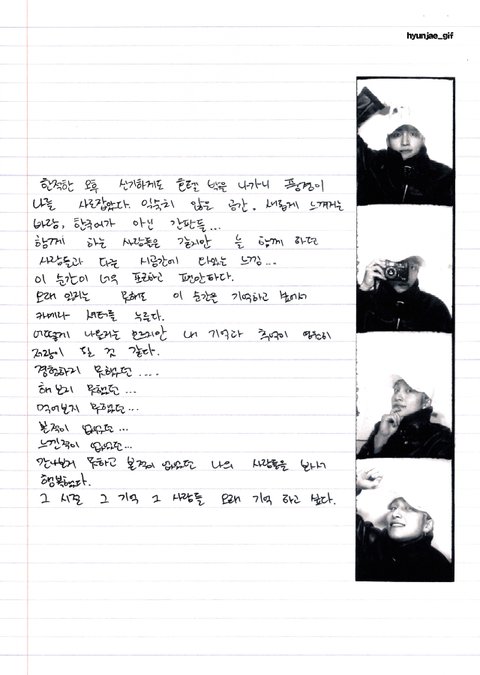 hyunjae_gif
한적한 오후 신기하게도 호텔 밖을 나가니 풍경이
나를 사로잡았다. 익숙치 않은 공간, 새롭게 느껴지는
바람, 한국어가 아닌 간판들...
함께 하는 사람들은 같지만 늘 함께 하던
사람들과 다른 시공간에 다있는 느낌...
이 순간이 너무 포근하고 편안하다.
오래 있지는 못해도 이 순간을 기억하고 싶어서
카메라 셔터를 누른다.
어떻게 나올지는 모르지만 내 기억과 추억이 영원히
저장이 될 것 같다.
경험하지 못했던 ....
해보지 못했던 ...
먹어보지 못했던...
본적이 없었던 ...
느낀적이 없었던...
만나보지 못하고 본적이 없었던 나의 사람들을 봐서
행복했다.
그 시절 그 기억 그 사람들 오래 기억 하고 싶다.